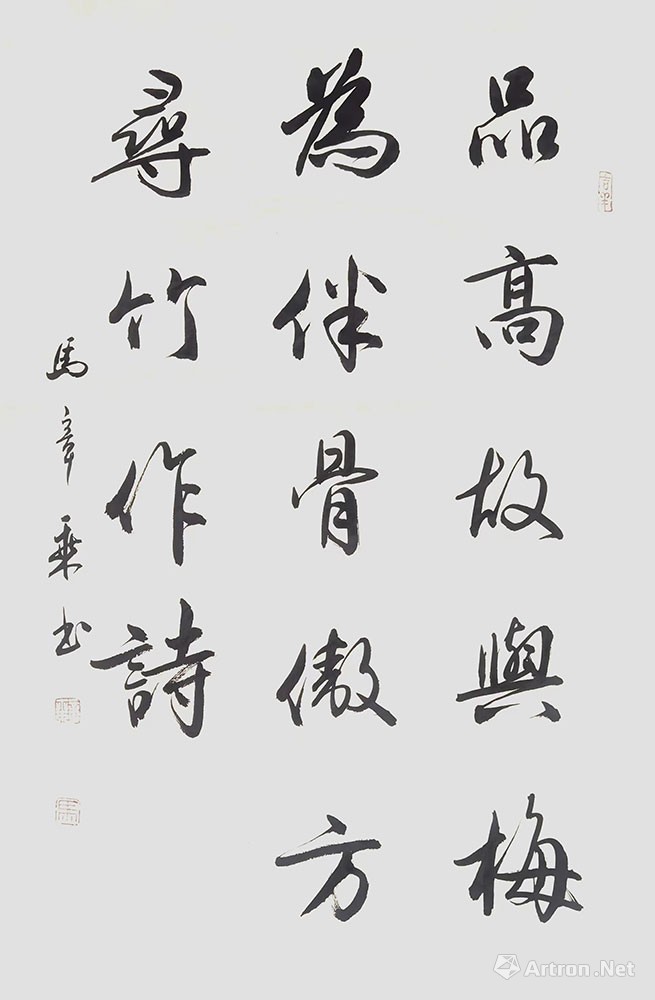 品高故與梅
為伴骨傲方
尋竹作詩
馬章乘书
Artron.Net